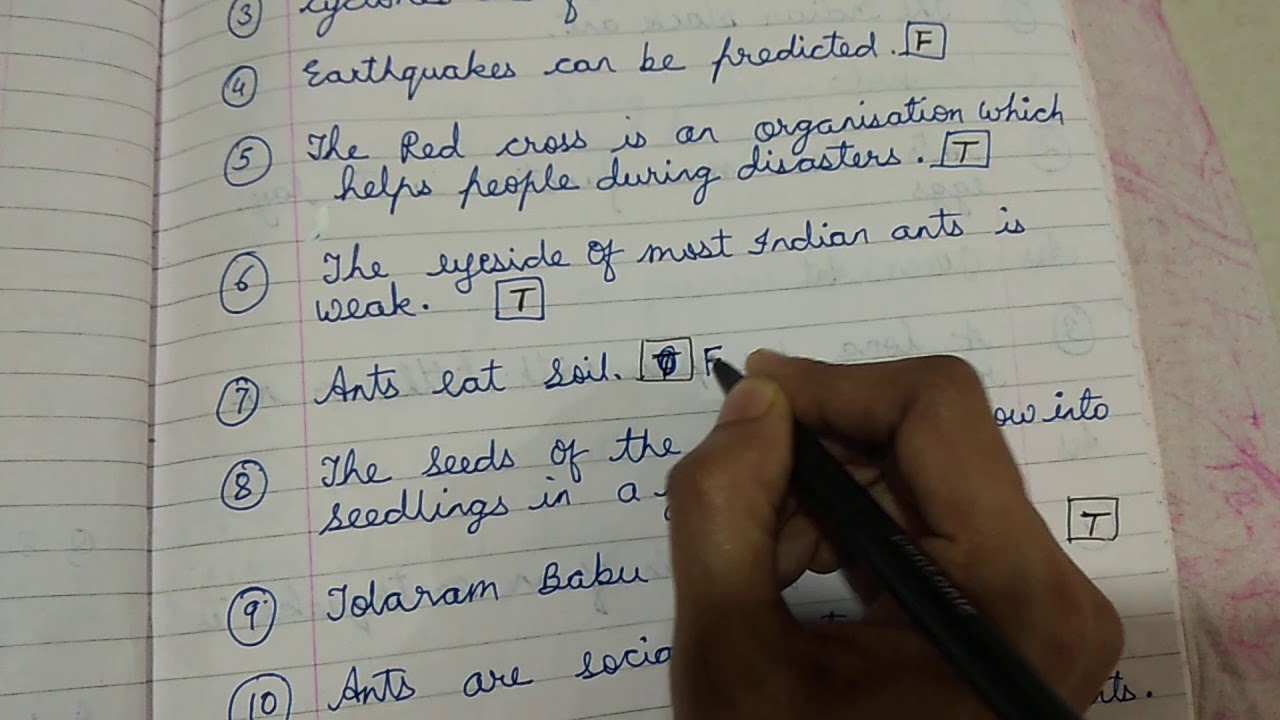 ③ cyclones
④ Earthquakes can be predicted. F
⑤ The Red cross is an organisation which
helps people during disasters. T
⑥ The eyeside of most Indian ants is
weak. T
⑦ Ants eat soil. F
⑧ The seeds of the ow into
seedlings in a T
⑨ Tolaram Babu
⑩ Ants are socia ts.